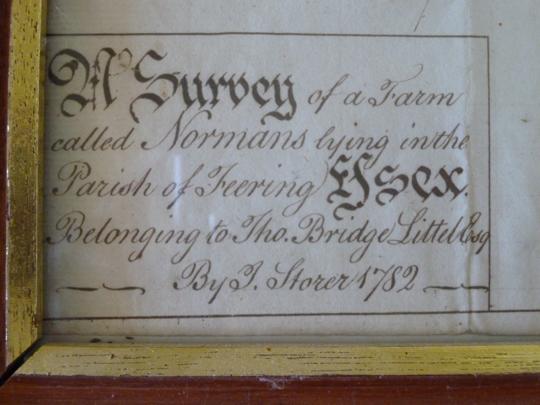 A Survey of a Farm
called Normans lying in the
Parish of Feering Essex.
Belonging to Tho. Bridge Littel Esq
By J. Storer 1782